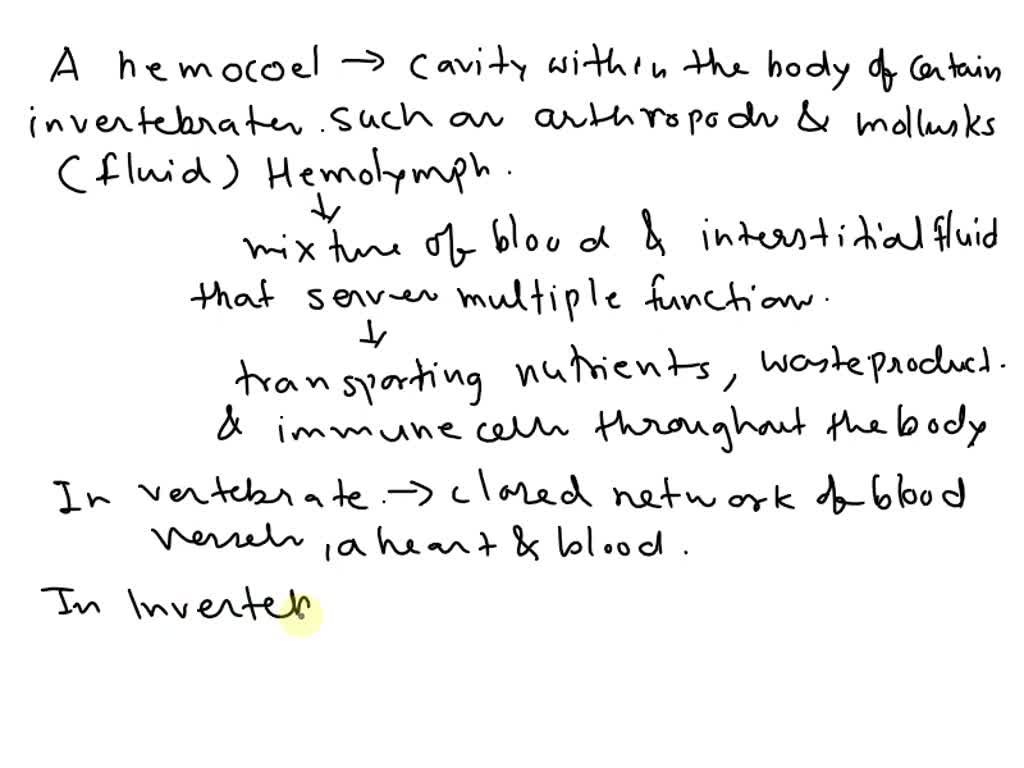 A hemocoel → cavity within the body of certain
invertebrates. such as arthropods & mollusks
(fluid) Hemolymph.
↓
mixture of blood & interstitial fluid
that serves multiple function.
↓
transporting nutrients, waste product.
& immune cells throughout the body
In vertebrate. → closed network of blood
vessels, a heart & blood.
In Inverteb